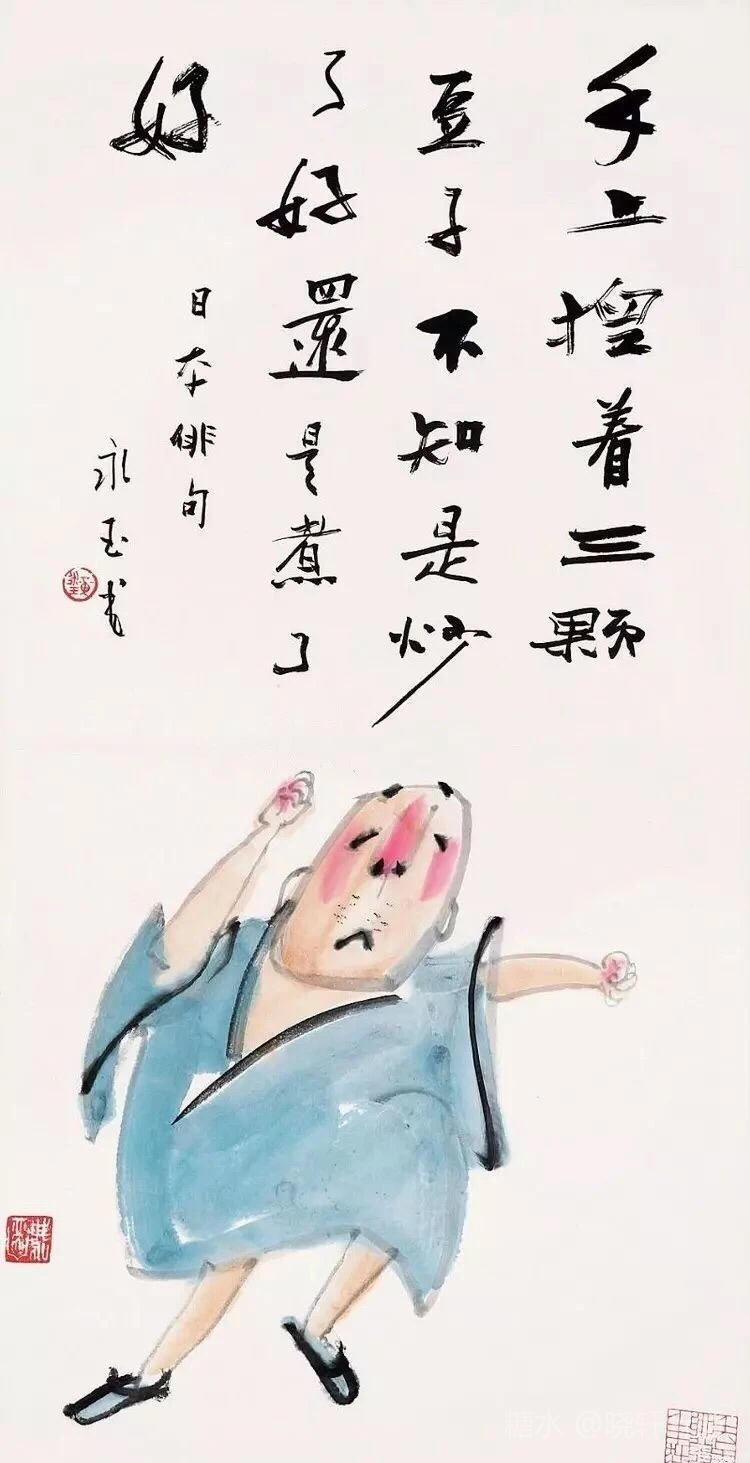 手上揑着三颗
豆子不知是炒
了好還是煮了
好
日本俳句
永玉
糖水 @晓轩